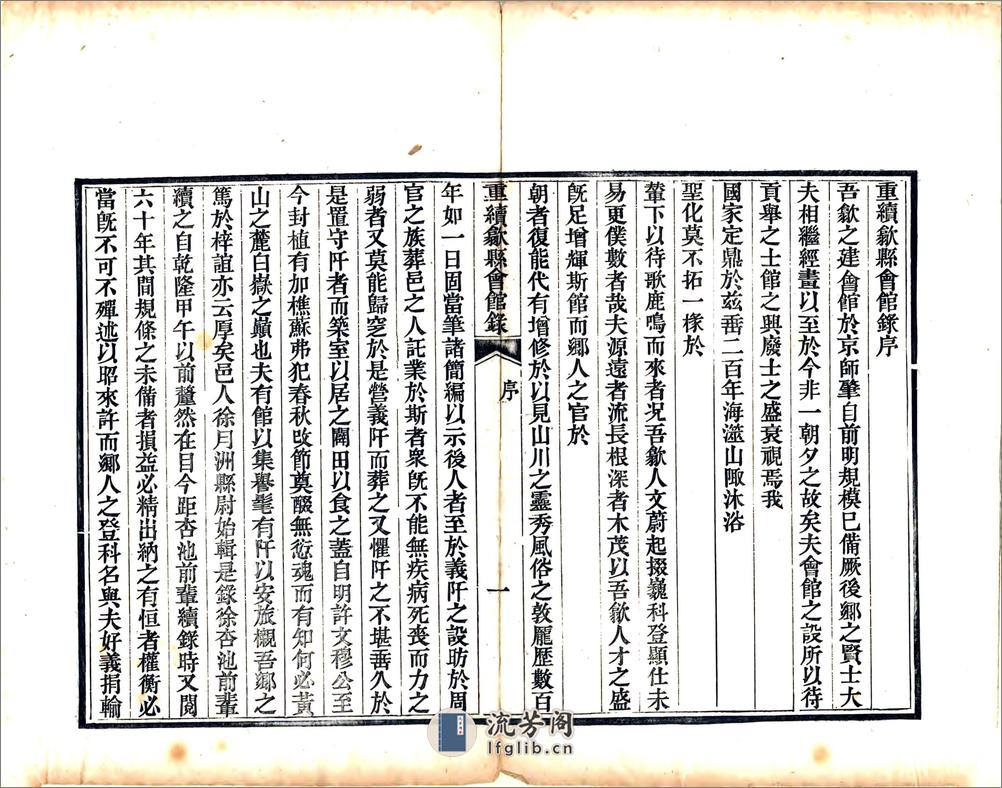 重續歙縣會館錄序
吾歙之建會館於京師肇自前明規模已備厥後鄉之賢士大
夫相繼經畫以至於今非一朝夕之故矣夫會館之設所以待
貢舉之士館之興廢士之盛衰視焉我
國家定鼎於兹垂二百年海澨山陬沐浴
聖化莫不拓一椽於
輦下以待歌鹿鳴而來者況吾歙人文蔚起掇巍科登顯仕未
易更僕數者哉夫源遠者流長根深者木茂以吾歙人才之盛
旣足增輝斯館而鄉人之官於
朝者復能代有增修於以見山川之靈秀風俗之敦龐歷數百
重續歙縣會館錄
序
一
年如一日固當筆諸簡編以示後人者至於義阡之設昉於周
官之族葬邑之人託業於斯者衆旣不能無疾病死喪而力之
弱者又莫能歸窆於是營義阡而葬之又懼阡之不堪善久於
是置守阡者而築室以居之闢田以食之蓋自明許文穆公至
今封植有加樵蘇弗犯春秋改節奠醊無愆魂而有知何必黃
山之麓白嶽之巔也夫有館以集譽髦有阡以安旅櫬吾鄉之
篤於梓誼亦云厚矣邑人徐月洲縣尉始輯是錄徐杏池前輩
續之自乾隆甲午以前釐然在目今距杏池前輩續錄時又閱
六十年其間規條之未備者損益必精出納之有恒者權衡必
當旣不可不殫述以昭來許而鄉人之登科名與夫好義捐輸
流芳阁
lfglib.cn